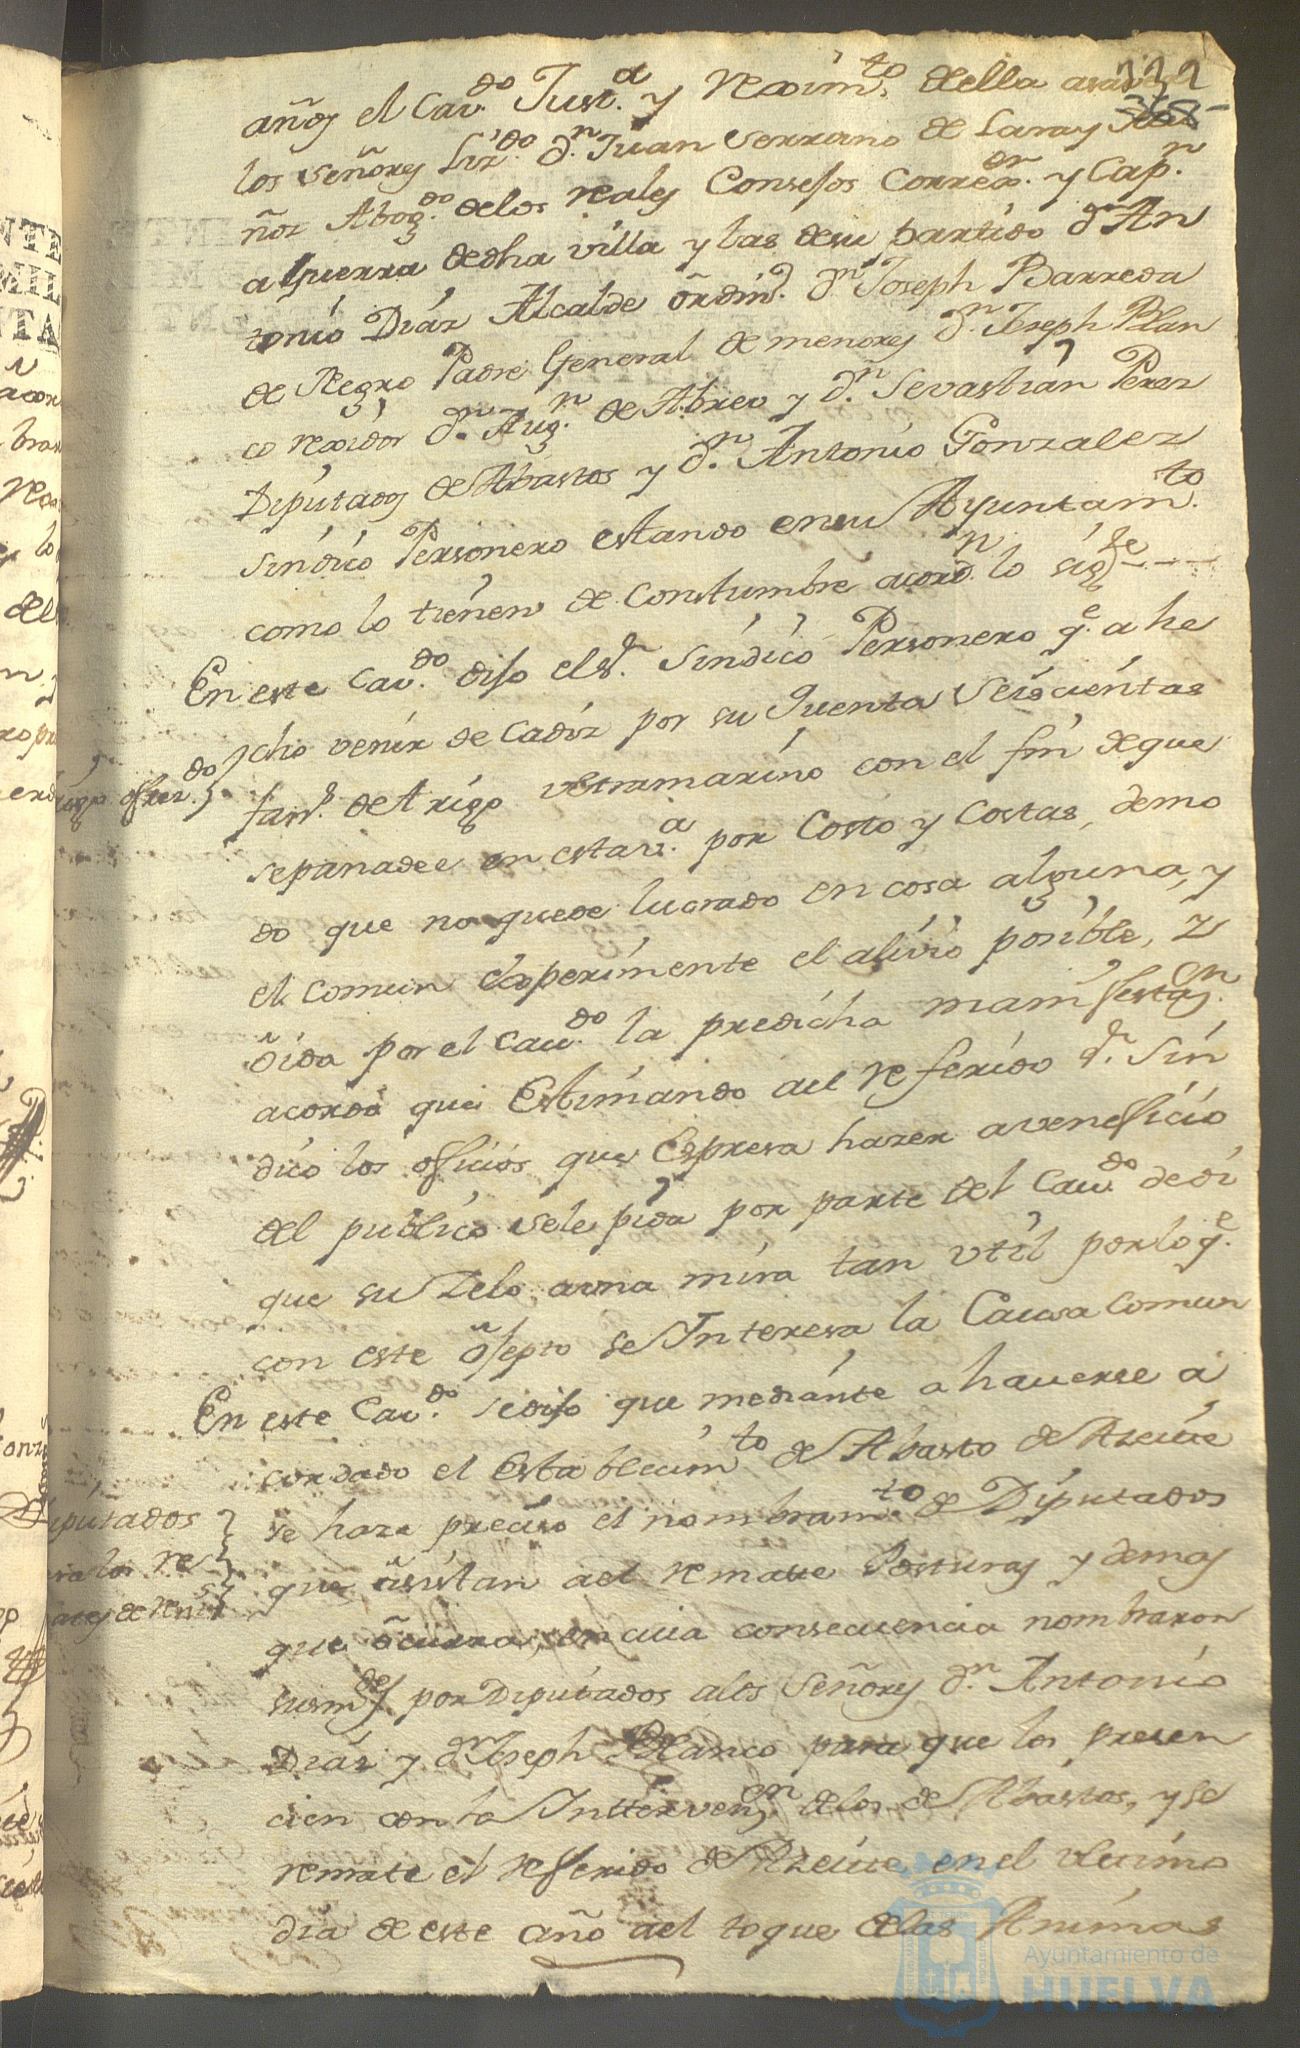 332
años el Cav.do Just.a y Rexim.to della asaver
los señores Liz.do d.n Juan Serrano de Lara y
ñoz Abog.do delos reales Consejos Corre.or y Cap.n
a Guerra de dha villa y las de su partido d.n An
tonio Diaz Alcalde ordin.o d.n Joseph Barreda
de Negro Padre General de menores d.n Joseph Blan
co rexidor d.n Aug.n de Abreo y d.n Sevastian Perez
Diputados de Abastos y d.n Antonio Gonzalez
Sindico Personero estando en su Ayuntam.to
como lo tienen de Constumbre acord.n lo sig.te
En este Cav.do dijo el s.r Sindico Personero q.e a he
cho venir de Cadiz por su Quenta Seiscientas
fan.s de trigo vltramarino con el fin de que
se panadee en esta v.a por Costo y Costas, de mo
do que no quede lucrado en cosa alguna, y
el comun experimente el alivio posible, y
oida por el Cav.do la predicha manifestaz.on
acordo que Estimando ael referido s.r Sin
dico los oficios que Espresa hazer a veneficio
del publico se le pida por parte del Cav.do dedi
que su Zelo auna mira tan vtil por lo q.e
con este objepto se Interesa la Causa Comun
En este Cav.do se dijo que mediante a haverse a
cordado el Establecim.to de Abasto de Azeite
se haze preciso el nombram.to de Diputados
que asistan ael remate Posturas y demas
que ocurra, en cuia consecuencia nombraron
susm.des por Diputados alos Señores d.n Antonio
Diaz y d.n Joseph Blanco para que los presen
cien con la Intterven.on delos de Abastos, y se
remate el refferido de Azeite en el vltimo
dia de este año ael toque delas Animas
trigo ofrez.do
Diputados
para los re
mates de rent.s
Ayuntamiento de
HUELVA